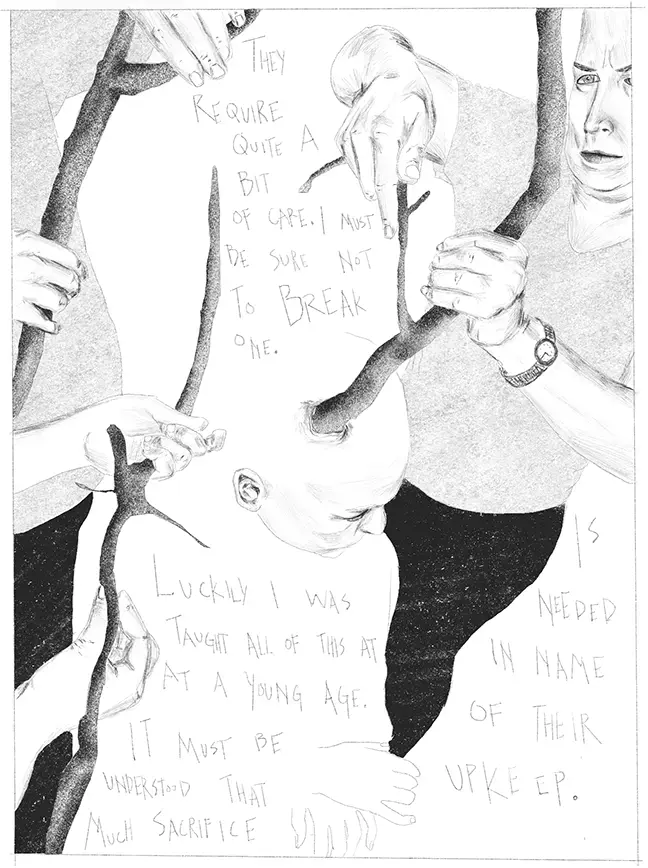 THEY
REQUIRE
QUITE A
BIT
OF CARE. I MUST
BE SURE NOT
TO BREAK
ONE.
LUCKILY I WAS
TAUGHT ALL OF THIS AT
AT A YOUNG AGE.
IT MUST BE
UNDERSTOOD THAT
MUCH SACRIFICE
IS
NEEDED
IN NAME
OF THEIR
UPKEEP.